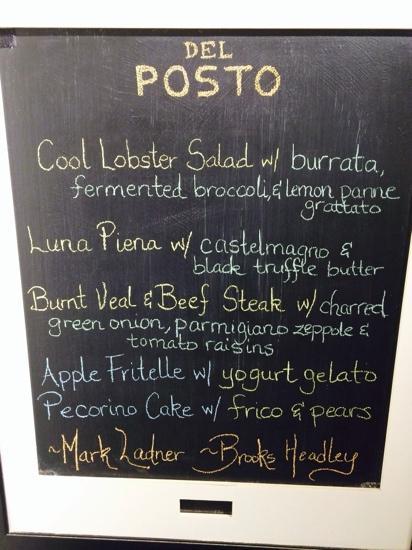 DEL
POSTO
Cool Lobster Salad w/ burrata,
fermented broccoli, & lemon panne
grattato
Luna Piena w/ castelmagno &
black truffle butter
Burnt Veal & Beef Steak w/ charred
green onion, parmigiano zeppole &
tomato raisins
Apple Fritelle w/ yogurt gelato
Pecorino Cake w/ frico & pears
~Mark Ladner ~Brooks Headley